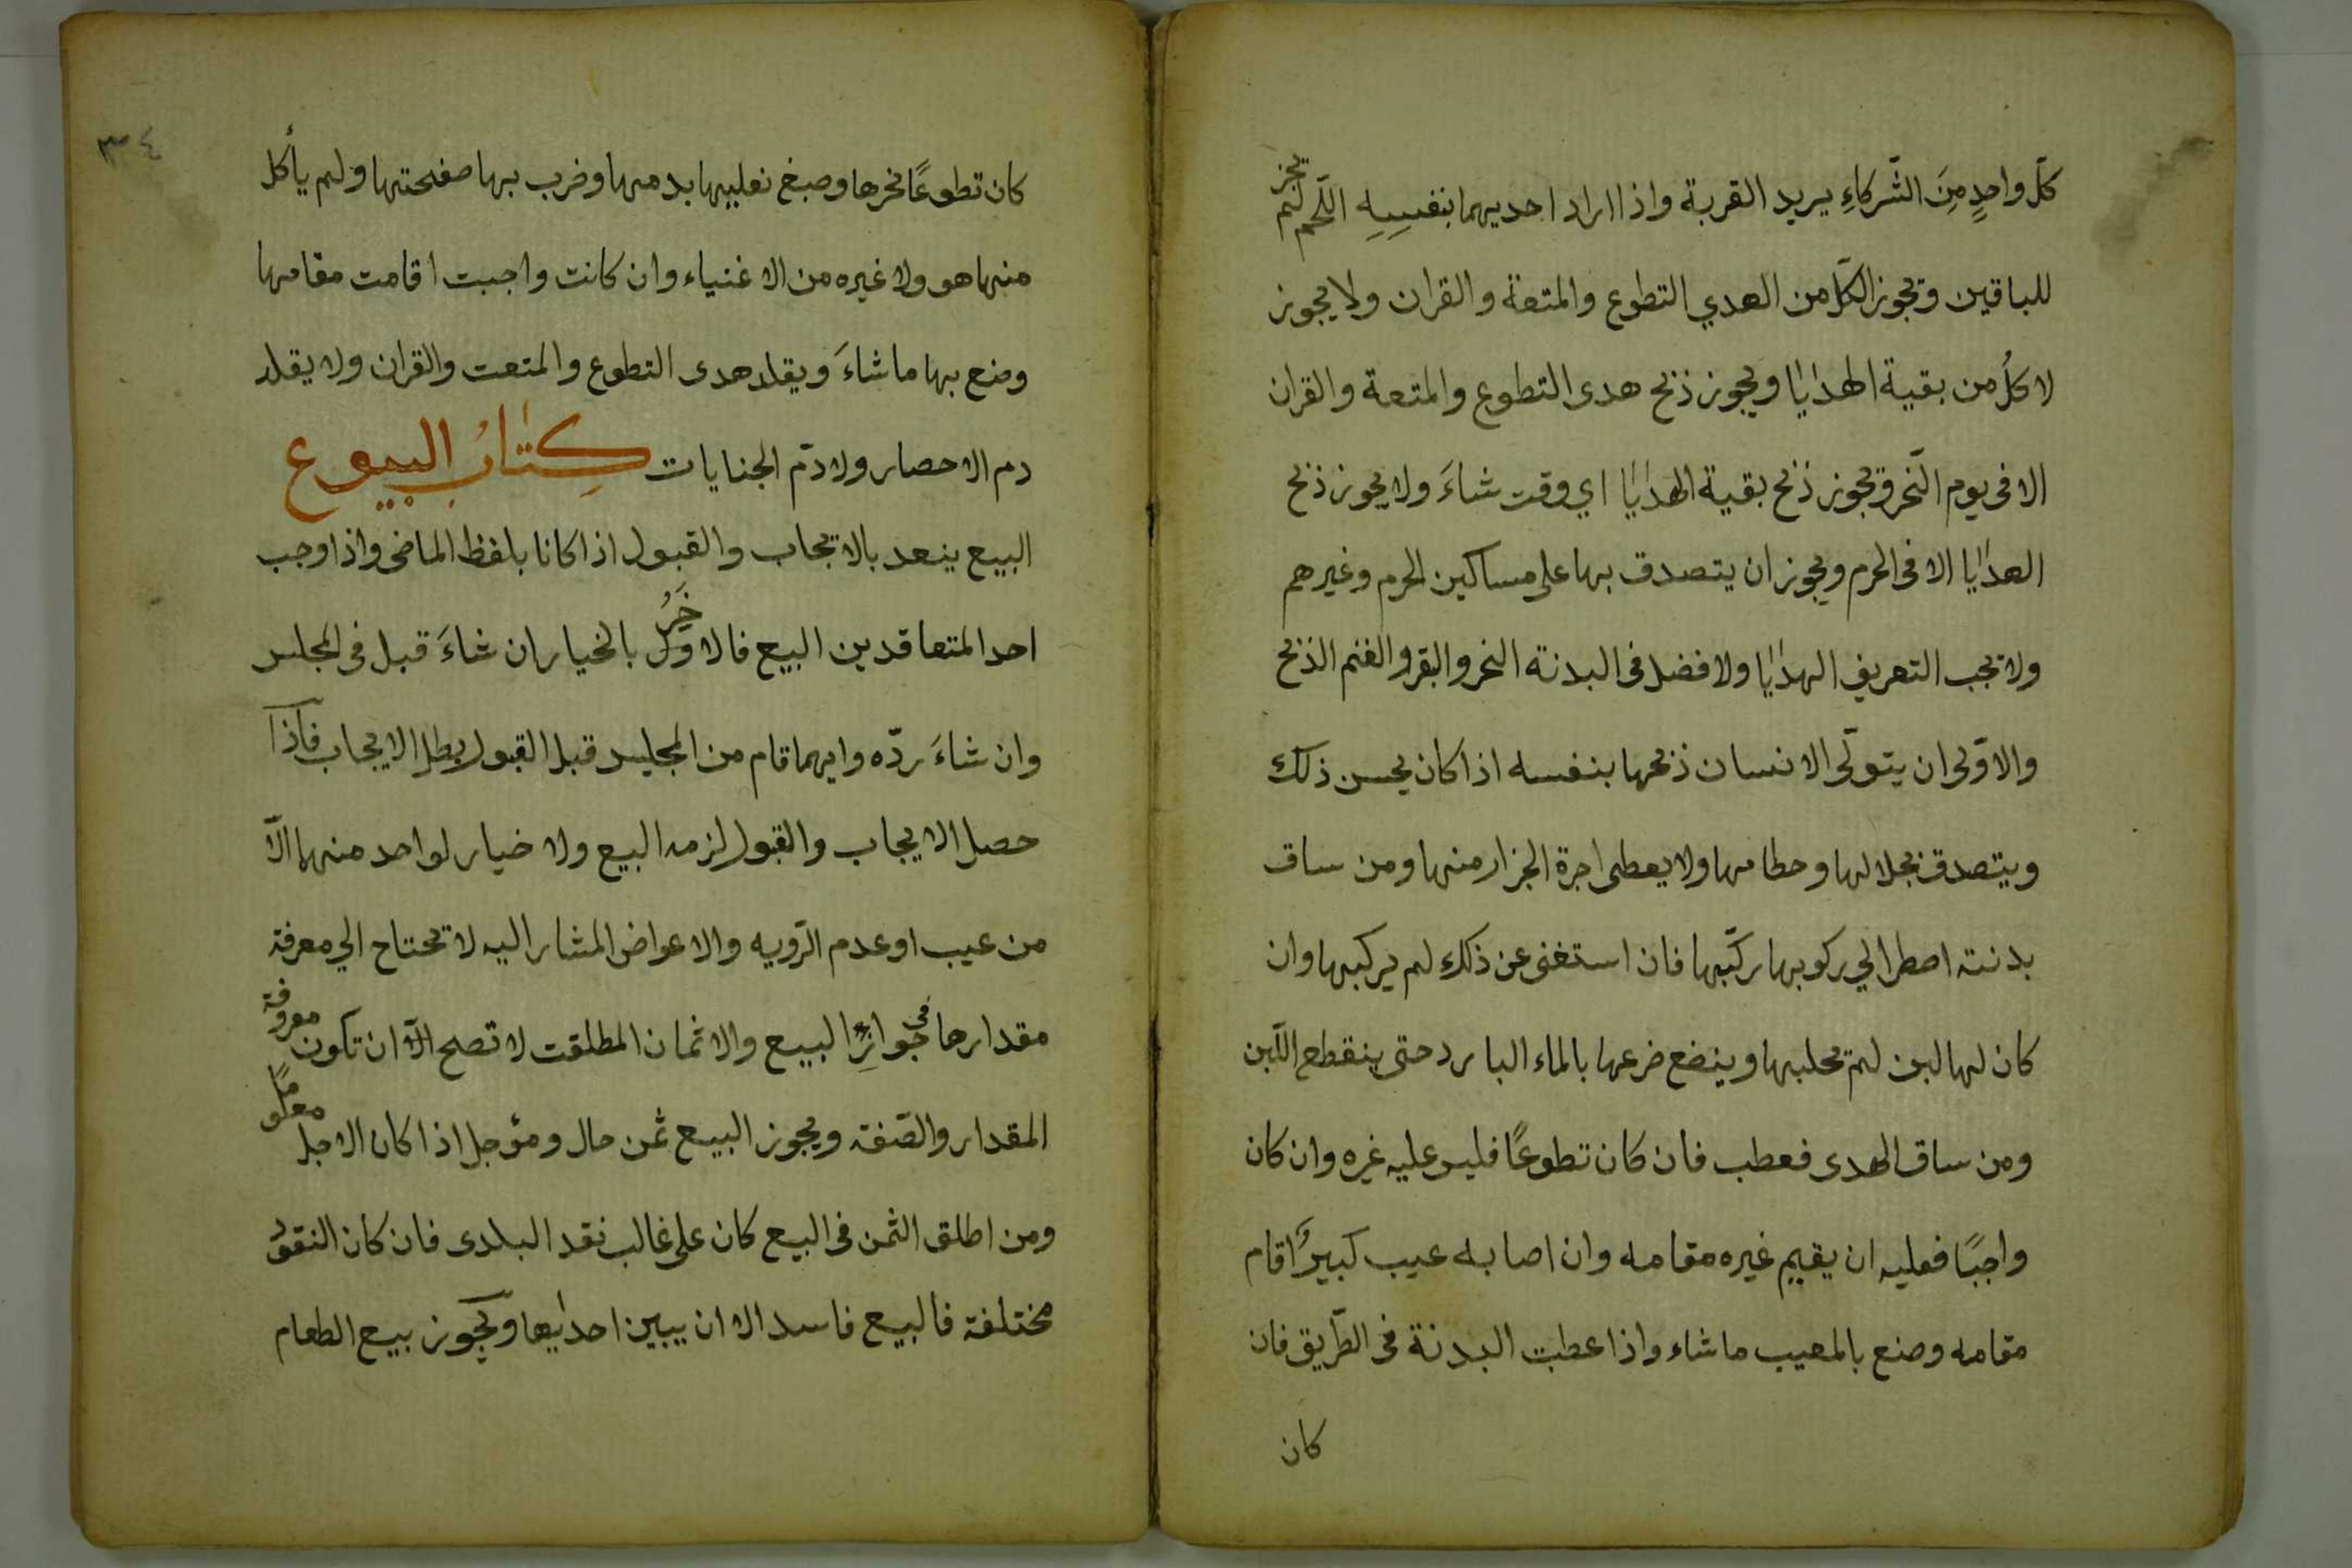 كلّ واحدٍ مِنَ الشّركاءِ يريد القربة واذا اراد احديهما بنفسِهِ اللّحم لم يجز
للباقين وتجوز الكلّ من الهدي التطوع والمتعة والقران ولا يجوز
لا كلُ من بقية الهدايا ويجوز ذبح هدى التطوع والمتعة والقران
الا فى يوم النّحر وتجوز ذبح بقية الهدايا اي وقت شاءَ ولا يجوز ذبح
الهدايا الا فى الحرم ويجوز ان يتصدق بها على مساكين الحرم وغيرهم
ولا تجب التعريف الهدايا ولا فضل فى البدنة النحر والبقر والغنم الذبح
والاوّلى ان يتولّى الانسان ذبحها بنفسه اذا كان يحسن ذلك
ويتصدق بجلالها وحطامها ولا يعطى اجرة الجزار منها ومن ساق
بدنته اصطر الي ركوبها ركّبها فان استغنى عن ذلك لم يركبها وان
كان لها لبن لم تحلبها وينضع ضرعها بالماء البارد حتى ينقطع اللّبن
ومن ساق الهدى فعطب فان كان تطوعًا فليس عليه غيره وان كان
واجبًا فعليه ان يقيم غيره مقامه وان اصابه عيب كبيرٌ اقام
مقامه وصنع بالمعيب ما شاء واذا عطبت البدنة فى الطّريق فان
كان
٣٤
كان تطوعًا نحرها وصبغ نعليها بدمها وضرب بها صفحتها ولم يأكل
منها هو ولا غيره من الاغنياء وان كانت واجبت اقامت مقامها
وصنع بها ما شاءَ ويقلد هدى التطوع والمتعت والقران ولا يقلد
دم الاحصار ولا دمّ الجنايات كِتابُ البيوع
البيع ينعد بالايجاب والقبول اذا كانا بلفظ الماضى واذا وجب
احد المتعاقدين البيع فالاوّل خَرُ بالخيار ان شاءَ قبل فى المجلس
وان شاءَ ردّه وايهما قام من المجليس قبل القبول بطل الايجاب فاذا
حصل الايجاب والقبول لزمه البيع ولا خيار لواحد منهما الّا
من عيب او عدم الرّويه والاعواض المشار اليه لا تحتاج الي معرفة
مقدارها فى جوازِ البيع والاثمان المطلقت لا تصح الّا ان تكون معروفة
المقدار والصّفة ويجوز البيع ثمن حال ومؤجل اذا كان الاجل معلومًا
ومن اطلق الثمن فى البيع كان على غالب نقد البلدى فان كان النقود
مختلفة فالبيع فاسد الا ان يبين احديها وَيجوز بيع الطعام